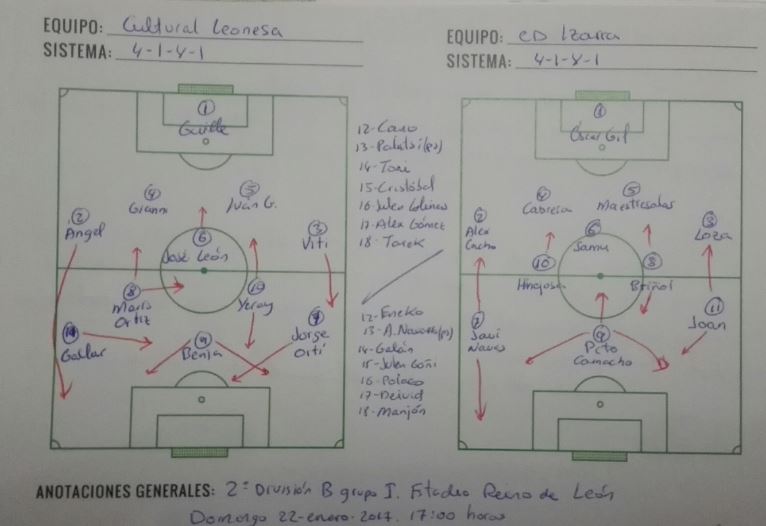 EQUIPO: Cultural Leonesa
SISTEMA: 4-1-4-1
1
Guille
4
Giann
5
Iván G.
2
Angel
6
José León
3
Viti
8
Mario Ortiz
10
Yeray
Gallar
9
Benja
Jorge Ortí
12-Cano
13-Palatsi (ps)
14-Toni
15-Cristóbal
16-Julen Colinas
17-Alex Gómez
18-Tarek
12-Eneko
13-A. Navarro (ps)
14-Galán
15-Julen Goñi
16-Polaco
17-Deivid
18-Manjón
EQUIPO: CD Izarra
SISTEMA: 4-1-4-1
1
Óscar Gil
4
Cabrera
5
Maestresalas
2
Alex Cacho
6
Samu
3
Loza
10
Hinojosa
8
Briñol
7
Javi Navas
9
Pito Camacho
11
Joan
ANOTACIONES GENERALES: 2ª División B grupo I. Estadio Reino de León
Domingo 22-enero-2017. 17:00 horas